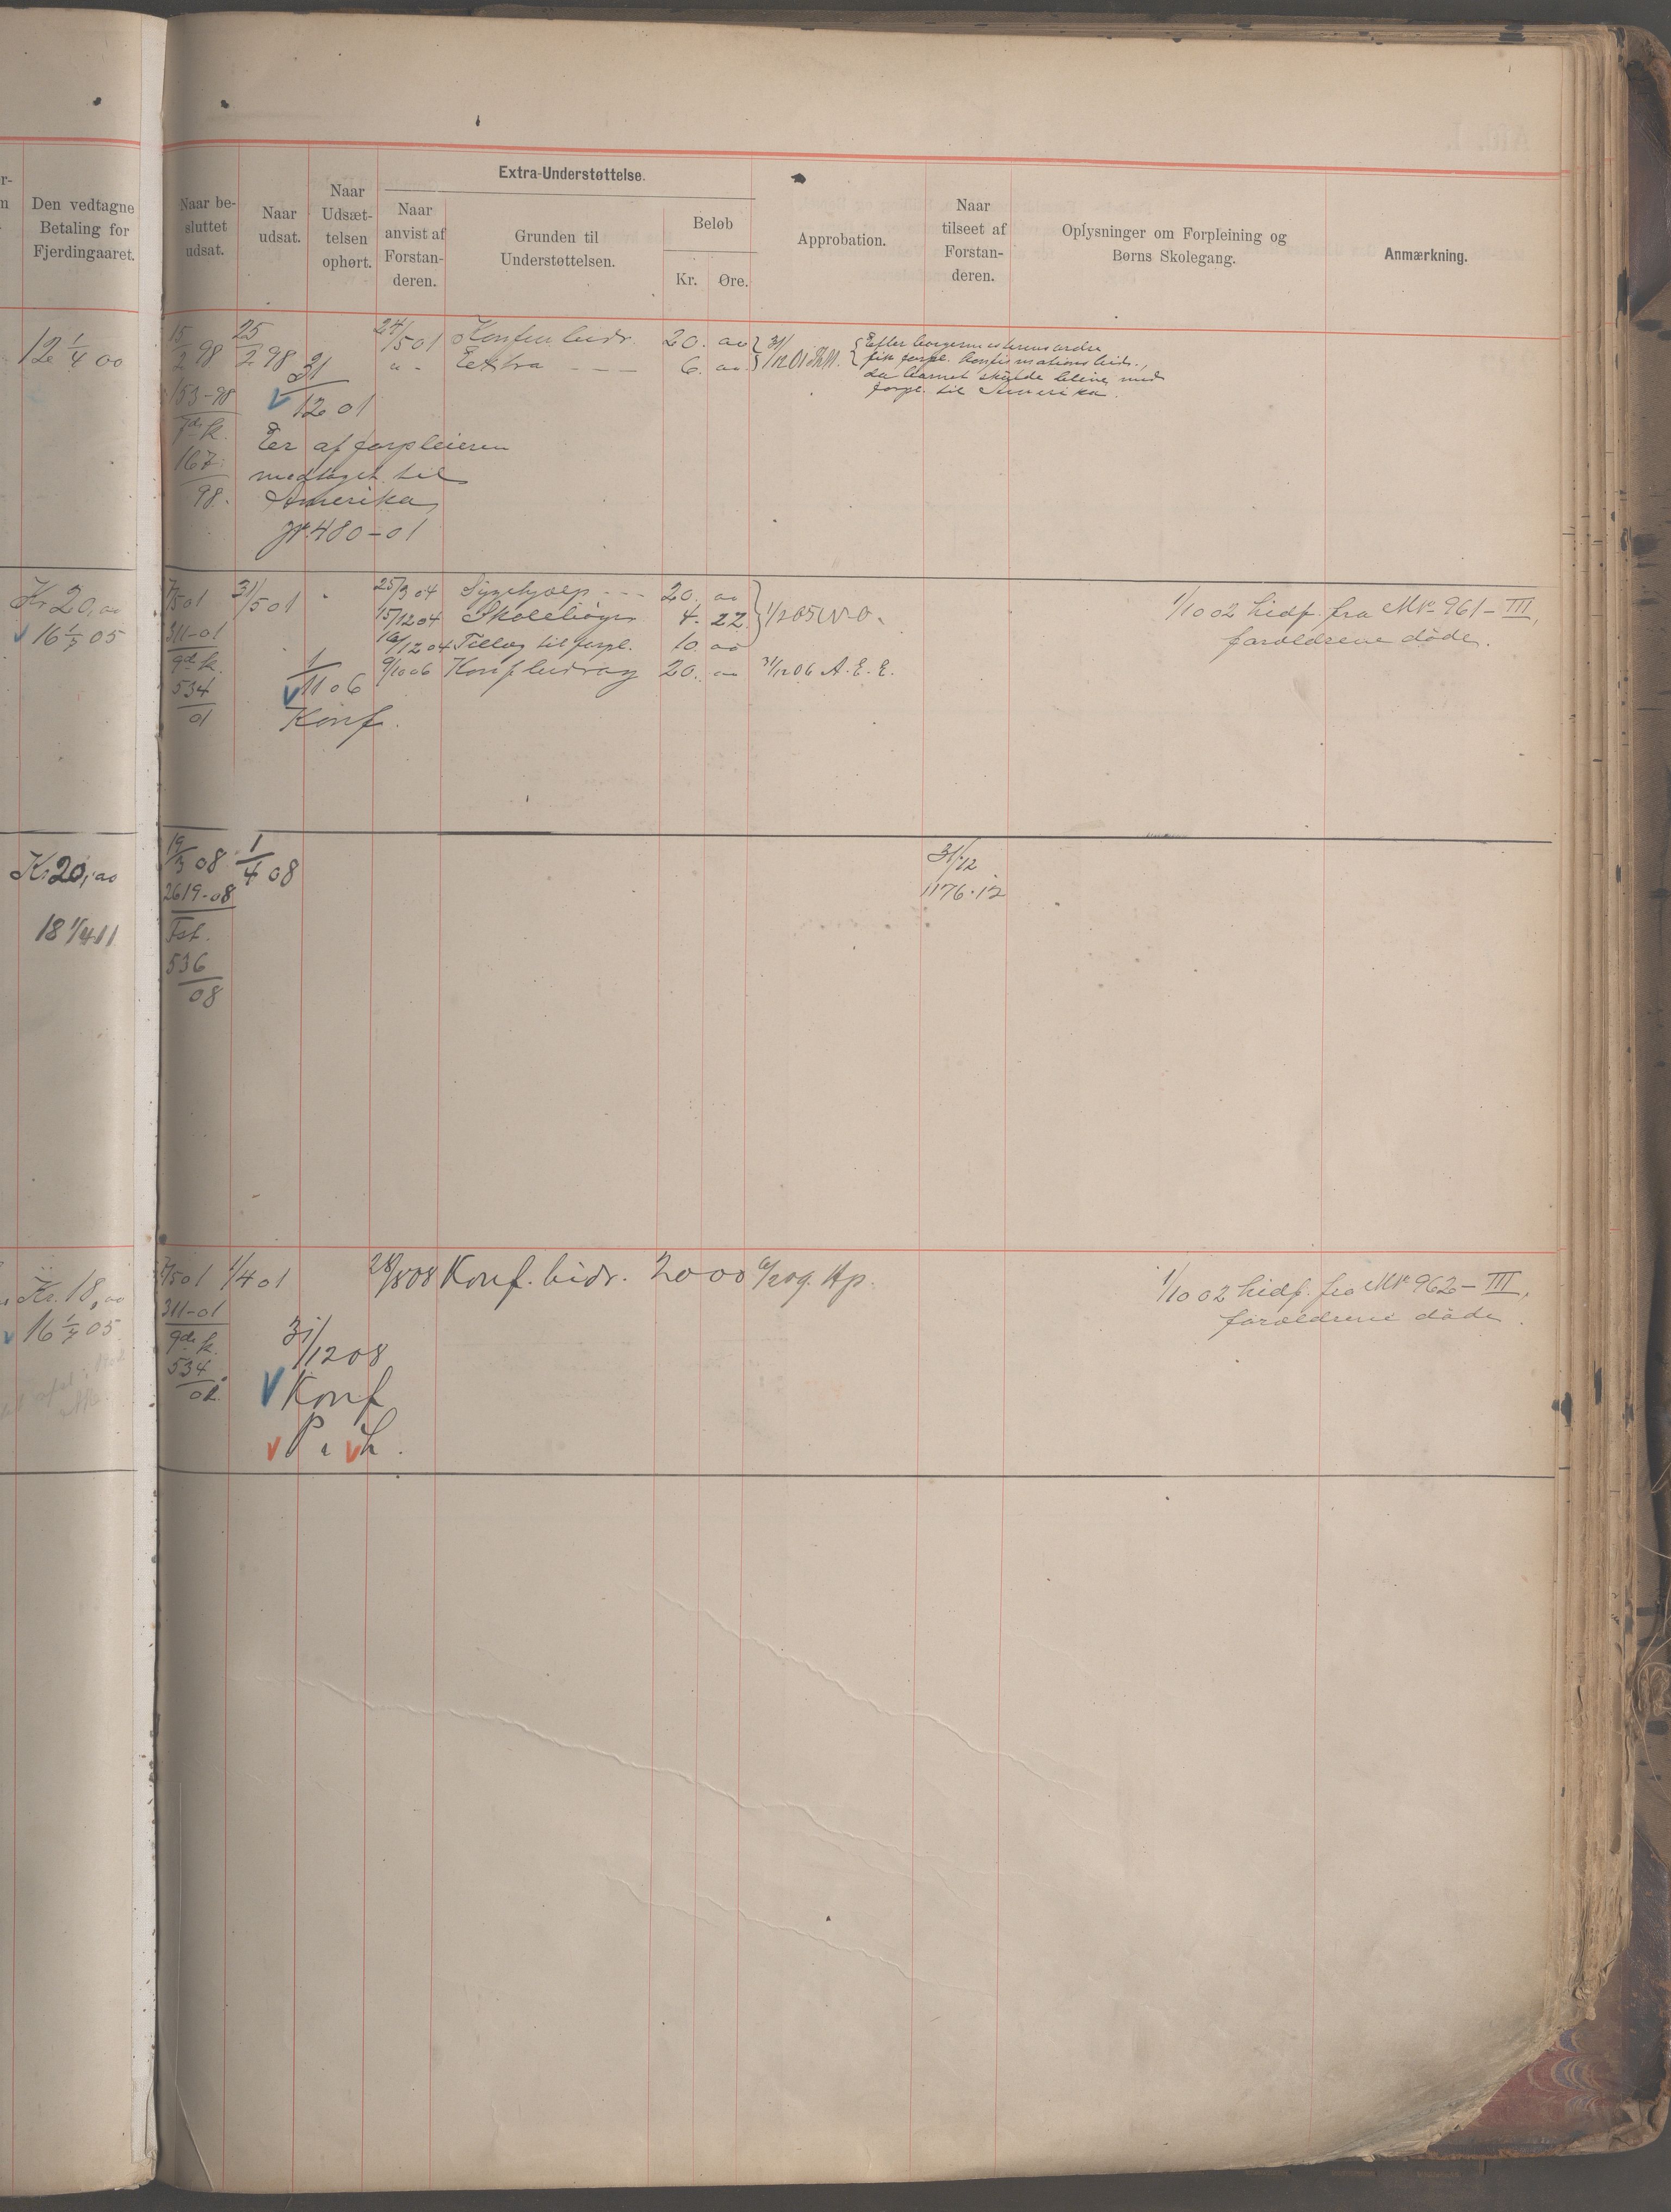 Den vedtagne
Betaling for
Fjerdingaaret.
Naar be-
sluttet
udsat.
Naar
udsat.
Naar
Udsæt-
telsen
ophørt.
Extra-Understøttelse.
Naar
anvist af
Forstan-
deren.
Grunden til
Understøttelsen.
Beløb
Kr. Øre.
Approbation.
Naar
tilseet af
Forstan-
deren.
Oplysninger om Forpleining og
Børns Skolegang.
Anmærkning.
12 1/4 00
15/2 98
25/2 98
153-98
167
98.
31/12 01
Er af forpleieren
medtaget til
Amerika
480-01
24/5 01 Konfm bidr. 20. 00
" - Extra - - - 6. 00
31/12 01
Efter borgermesterens ordre
fik forpl. konfirmations bidr.,
da barnet skulde blive med
forpl. til Amerika.
Kr 20,00
16 1/7 05
7/5 01
31/5 01
311-01
534
01
1/11 06
Konf.
25/3 04 Sygehjælp - - - 20. 00
15/12 04 Skolebøger 4. 22
16/12 04 Tillæg til forpl. 10. 00
9/10 06 Konfbidrag 20. 00 31/12 06 A. E. E.
1/10 02 hidf. fra Nr. 961-III,
forældrene døde.
Kr 20,00
18 1/4 11
19/3 08
1/4 08
2619-08
Fst.
536
08
31/12
1176-12
Kr. 18,00
16 1/7 05
7/5 01 1/4 01
311-01
534
01
31/12 08
Konf
28/8 08 Konf. bidr. 20 00
1/10 02 hidf. fra Nr. 962-III,
forældrene døde.